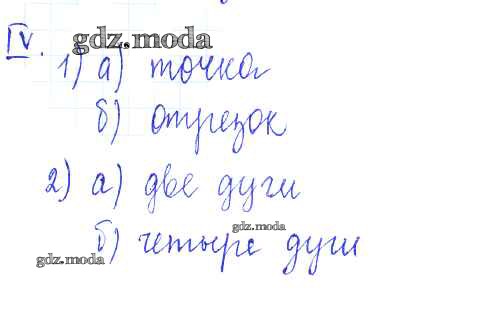 gdz.moda
IV.
1) а) точка
б) отрезок
2) а) две дуги
gdz.moda
б) четыре дуги
gdz.moda